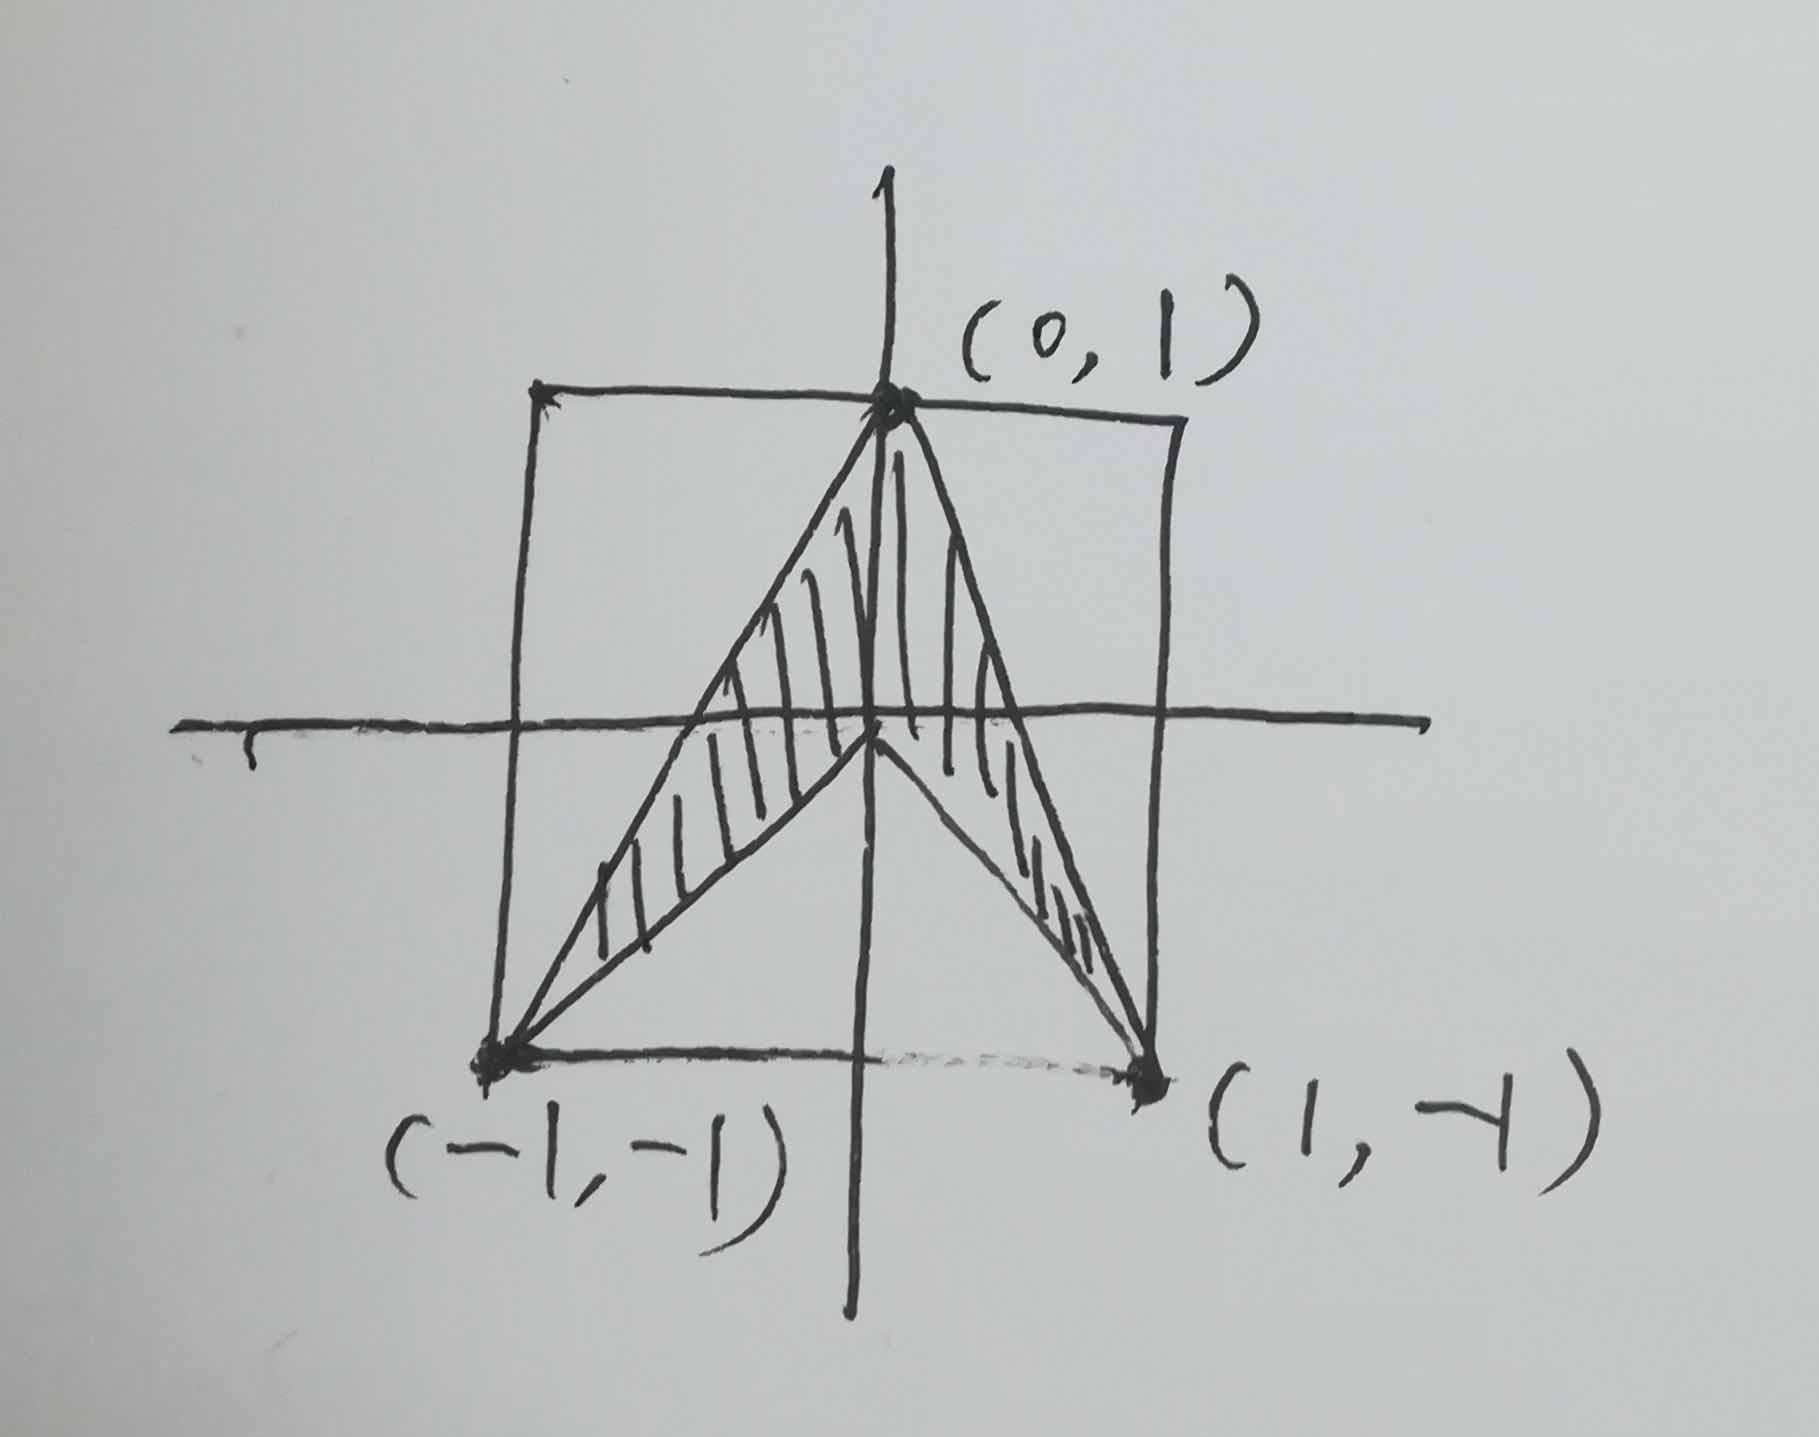 (0, 1)
(-1, -1)
(1, -1)